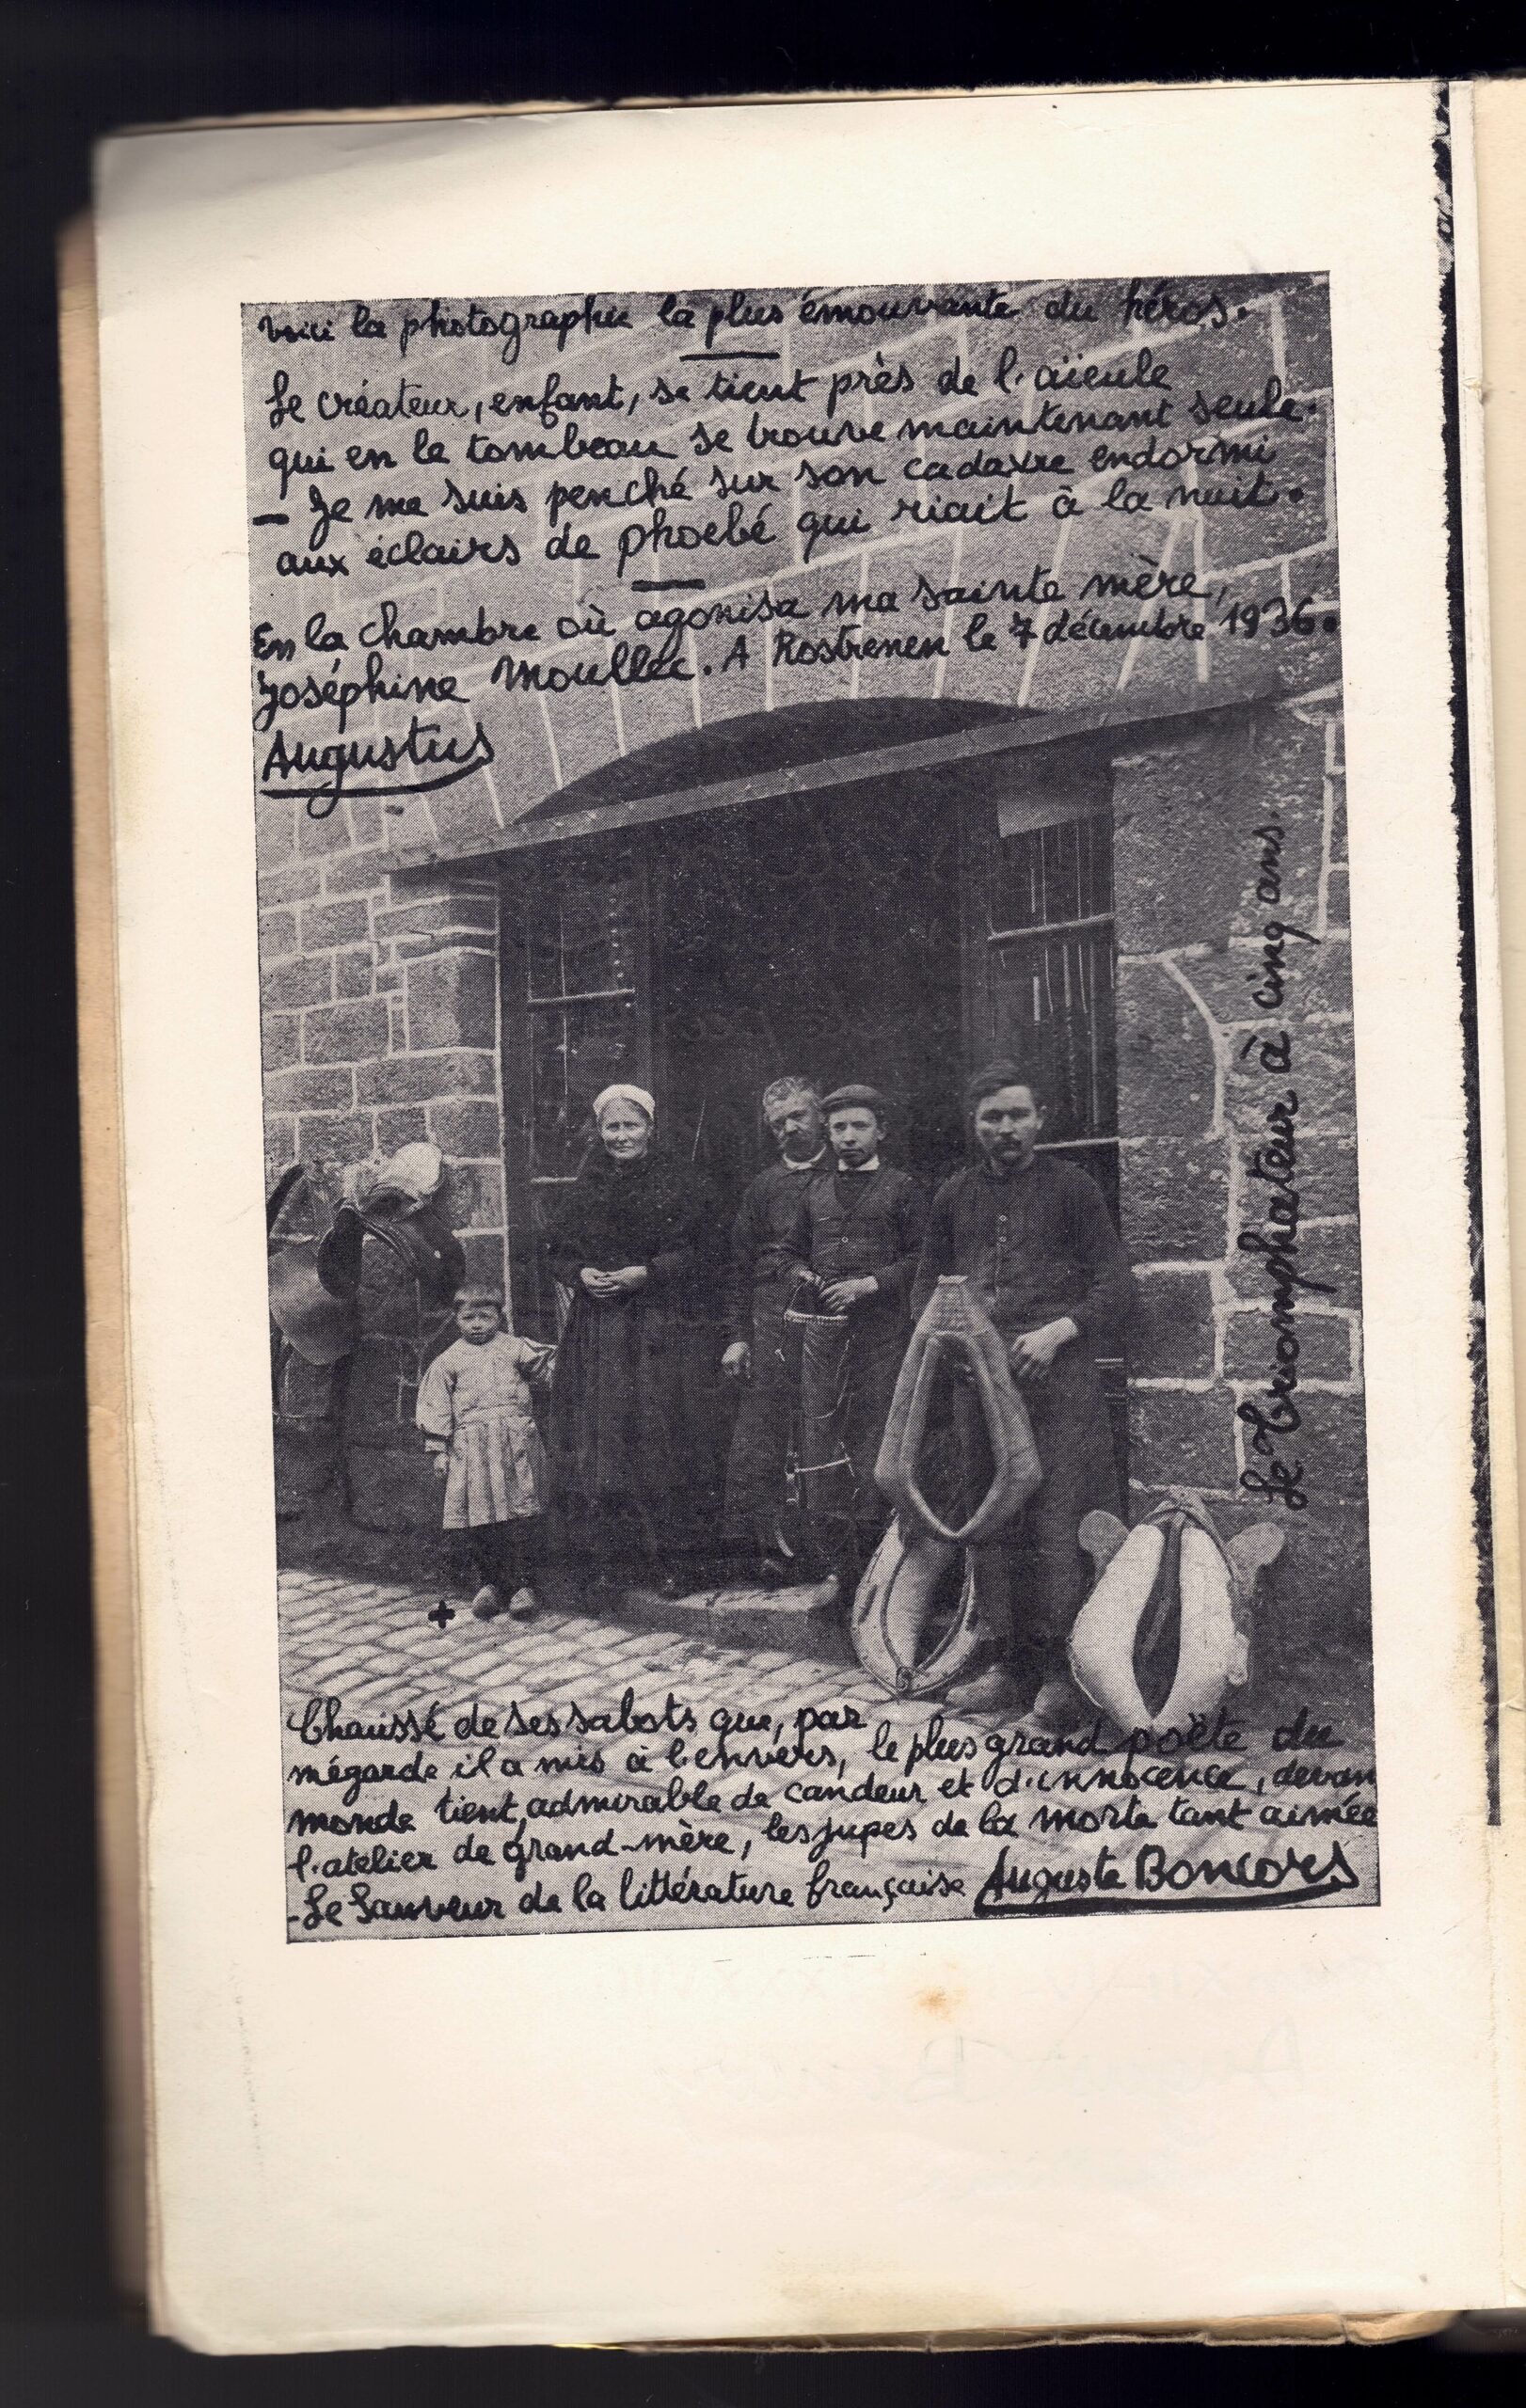 Voici la photographie la plus émouvante du héros.
Le créateur, enfant, se tient près de l'aïeule
qui en le tombeau se trouve maintenant seule.
— Je me suis penché sur son cadavre endormi
aux éclairs de phoebé qui riait à la nuit.
En la chambre où agonisa ma sainte mère,
Joséphine Moullec. A Rostrenen le 7 décembre 1936.
Augustus
Le Triomphateur à cinq ans.
+
Chaussé de ses sabots que, par
mégarde il a mis à l'envers, le plus grand poëte du
monde tient, admirable de candeur et d'innocence, devan
l'atelier de grand-mère, les jupes de la morte tant aimée
- Le Sauveur de la littérature française Auguste Boncors